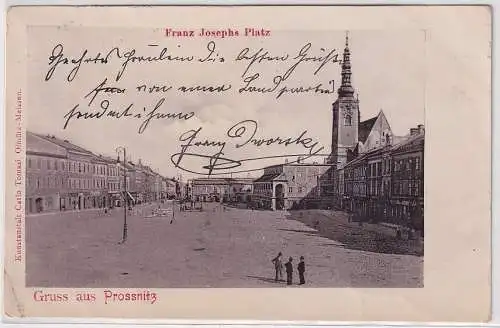 Franz Josephs Platz
Geehrtes Fräulein die besten Grüße
von einer Landpartie
sendet Ihnen
Franz Dworsky
Kunstanstalt Carlo Tomasi Olmütz-Meissen.
Gruss aus Prossnitz